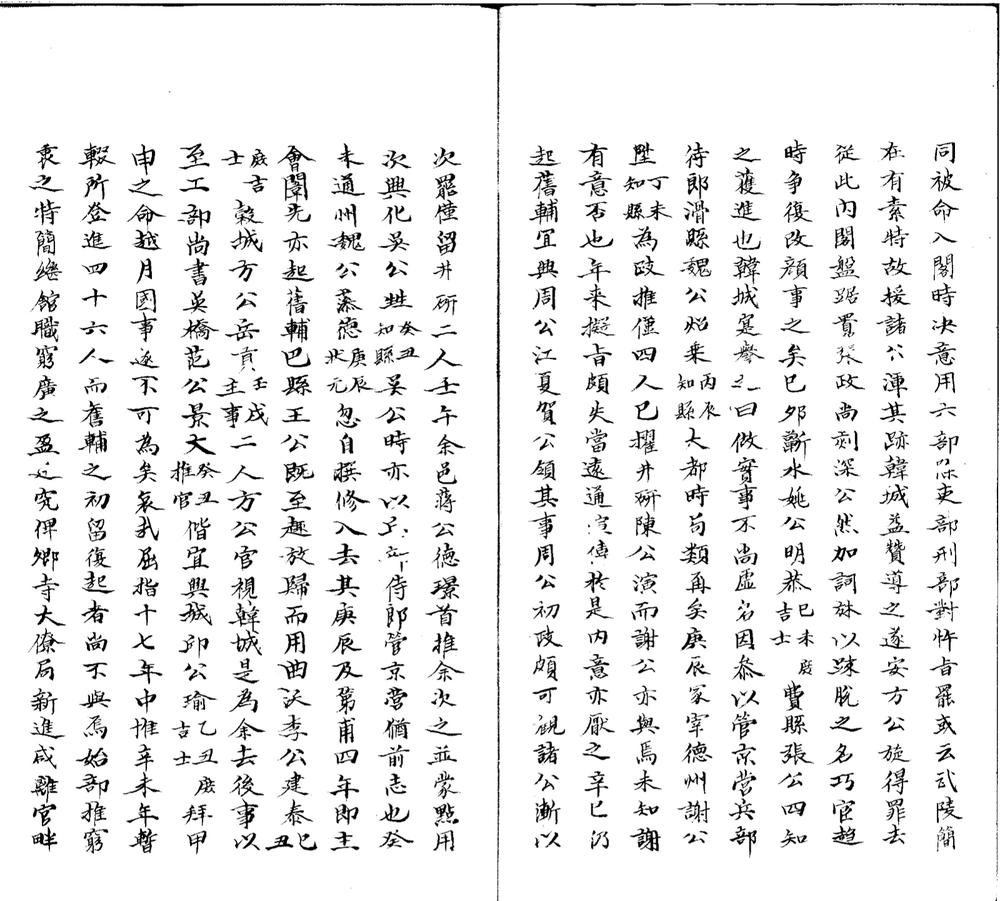 同被命入閣時決意用六部除吏部刑部對忤旨罷或云武陵簡
在有素特故援諸公渾其跡韓城益贊導之遂安方公旋得罪去
從此內閣盤踞賈張政尚刻深公然加詞林以疎脫之名巧宦趨
時爭復改顏事之矣已卯蘄水姚公明恭己未庶吉士費縣張公四知
之驟進也韓城寔譽之曰做實事不尚虛名因叅以管京營兵部
侍郎滑縣魏公炤乘丙辰知縣大都時苟類再矣庚辰冢宰德州謝公
陞丁未知縣為政推僅四人已擢井研陳公演而謝公亦與焉未知謝
有意否也年来擬旨頗失當遠通宣傳於是內意亦厭之辛巳仍
起舊輔宜興周公江夏賀公領其事周公初政頗可觀諸公漸以
次罷僅留井研二人壬午余邑蔣公德璟首推余次之並蒙點用
次興化吳公甡癸丑知縣吳公時亦以侍郎管京營猶前志也癸
未通州魏公藻德庚辰狀元忽自撰修入去其庚辰及第甫四年即主
會闈先亦起舊輔巴縣王公既至趣放歸而用曲沃李公建泰乙丑
庶吉士穀城方公岳貢壬戌主事二人方公官視韓城是為余去後事以
至工部尚書吳橋范公景大癸丑推官偕宜興城邱公瑜乙丑庶吉士拜甲
申之命越月國事遂不可為矣哀哉屈指十七年中推辛未年暫
輟所登進四十六人而舊輔之初留復起者尚不與焉始部推窮
衷之特簡繼館職窮廣之盈廷究俾卿寺大僚局新進咸離官畔